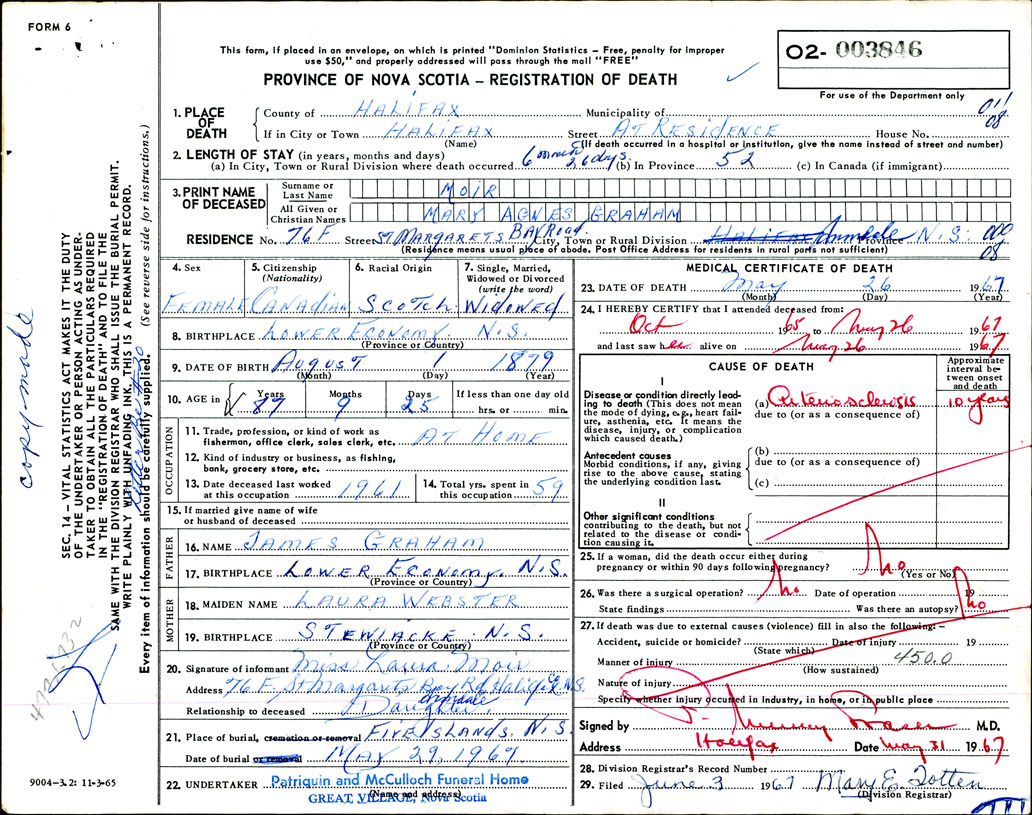 FORM 6
This form, if placed in an envelope, on which is printed "Dominion Statistics – Free, penalty for improper
use $50," and properly addressed will pass through the mail "FREE"
PROVINCE OF NOVA SCOTIA – REGISTRATION OF DEATH
02- 003846
For use of the Department only
011
08
1. PLACE OF DEATH
County of HALIFAX Municipality of
If in City or Town HALIFAX Street AT RESIDENCE House No.
(Name) (If death occurred in a hospital or institution, give the name instead of street and number)
2. LENGTH OF STAY (in years, months and days)
(a) In City, Town or Rural Division where death occurred. 6 months 26 days. (b) In Province 52 (c) In Canada (if immigrant)
3. PRINT NAME OF DECEASED
Surname or Last Name MOIR
All Given or Christian Names MARY AGNES GRAHAM
RESIDENCE No. 76 F Street ST MARGARETS BAY ROAD. City, Town or Rural Division HALIFAX Armdale Province N.S. 000
08
(Residence means usual place of abode. Post Office Address for residents in rural parts not sufficient)
4. Sex FEMALE
5. Citizenship (Nationality) CANADIAN
6. Racial Origin SCOTCH
7. Single, Married, Widowed or Divorced (write the word) WIDOWED
8. BIRTHPLACE LOWER ECONOMY. N.S.
(Province or Country)
9. DATE OF BIRTH AUGUST 1 1879
(Month) (Day) (Year)
10. AGE in Years 87 Months 9 Days 25 If less than one day old hrs. or min.
OCCUPATION
11. Trade, profession, or kind of work as fisherman, office clerk, sales clerk, etc. AT HOME
12. Kind of industry or business, as fishing, bank, grocery store, etc.
13. Date deceased last worked at this occupation 1961
14. Total yrs. spent in this occupation 59
15. If married give name of wife or husband of deceased
FATHER
16. NAME JAMES GRAHAM
17. BIRTHPLACE LOWER ECONOMY. N.S.
(Province or Country)
MOTHER
18. MAIDEN NAME LAURA WEBSTER
19. BIRTHPLACE STEWIACKE N.S.
(Province or Country)
20. Signature of informant Miss Laura Moir
Address 76 F. St Margarets Bay Rd Halifax Co. N.S.
Armdale
Relationship to deceased Daughter.
21. Place of burial, cremation or removal FIVE ISLANDS. N.S.
Date of burial or removal MAY 29, 1967
22. UNDERTAKER Patriquin and McCulloch Funeral Home
(Name and address)
GREAT VILLAGE, Nova Scotia
MEDICAL CERTIFICATE OF DEATH
23. DATE OF DEATH May 26 1967
(Month) (Day) (Year)
24. I HEREBY CERTIFY that I attended deceased from:
Oct 1965 to May 26 1967
and last saw her alive on May 26 1967
CAUSE OF DEATH
Approximate interval between onset and death
I
Disease or condition directly leading to death (This does not mean the mode of dying, e.g., heart failure, asthenia, etc. It means the disease, injury, or complication which caused death.)
(a) Arteriosclerosis 10 years
due to (or as a consequence of)
Antecedent causes
Morbid conditions, if any, giving rise to the above cause, stating the underlying condition last.
(b)
due to (or as a consequence of)
(c)
II
Other significant conditions
contributing to the death, but not related to the disease or condition causing it.
25. If a woman, did the death occur either during pregnancy or within 90 days following pregnancy? No
(Yes or No)
26. Was there a surgical operation? No Date of operation 19
State findings Was there an autopsy? No
27. If death was due to external causes (violence) fill in also the following:–
Accident, suicide or homicide? Date of injury 19
(State which)
Manner of injury 450.0
(How sustained)
Nature of injury
Specify whether injury occurred in Industry, in home, or in public place
Signed by J. Murray Fraser M.D.
Address Halifax Date May 31 1967
28. Division Registrar's Record Number
29. Filed June 3 1967 Mary E. Totten
(Division Registrar)
SEC. 14 – VITAL STATISTICS ACT MAKES IT THE DUTY
OF THE UNDERTAKER OR PERSON ACTING AS UNDER-
TAKER TO OBTAIN ALL THE PARTICULARS REQUIRED
IN THE "REGISTRATION OF DEATH" AND TO FILE THE
SAME WITH THE DIVISION REGISTRAR WHO SHALL ISSUE THE BURIAL PERMIT.
WRITE PLAINLY WITH UNFADING INK. THIS IS A PERMANENT RECORD.
Every item of information should be carefully supplied. (See reverse side for instructions.)
copy made
9004-3.2: 11-3-65